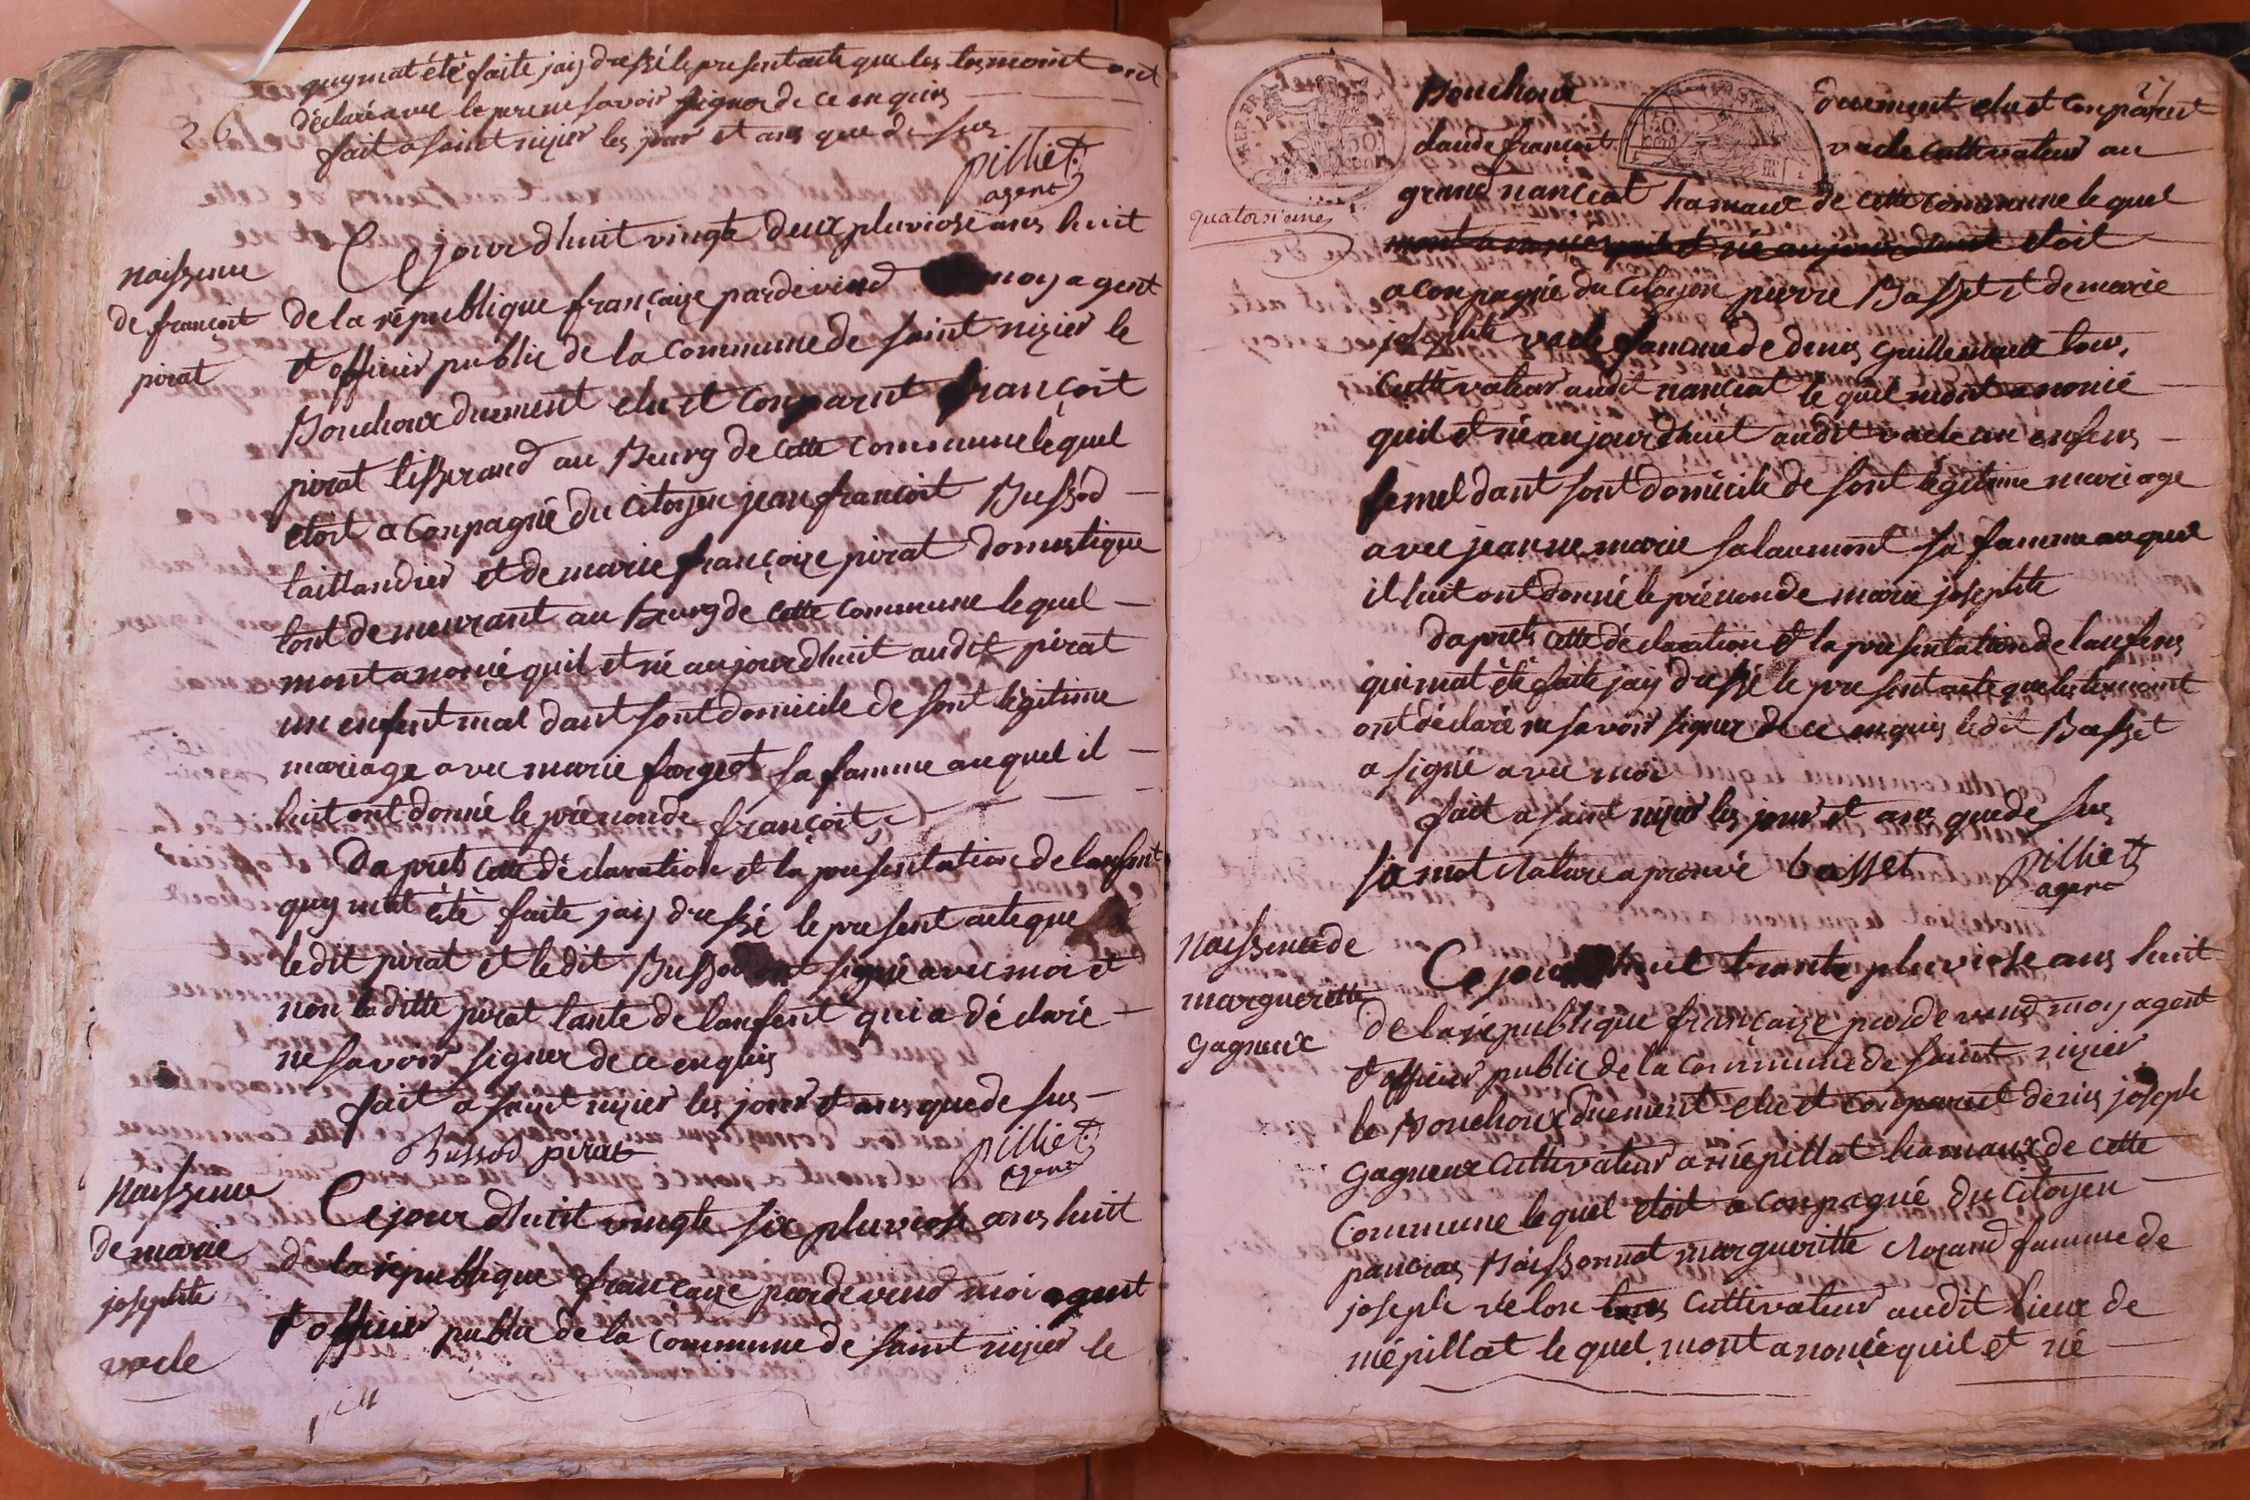 quy mat été faite jaiy dressé le present acte que les tesmoint ont
declaré avec le perre ne savoir signer de ce enquis
26
fait a saint nizier les jour et ans que de sus
pilliet
agent
Ce jour dhuit vingte deux pluviose ans huit
naissence
de françoit
pirat
de la république françaize pardevend moy agent
et officier public de la commune de saint nizier le
Bouchoux duement elu et conparut françoit
pirat tisserand au Bourg de cette commune lequel
etoit aconpagnié du citoyen jean françoit Bussod
taillandier et de marie françoize pirat domestique
tout demeurant au bourg de cette commune lequel
mont anoncé quil et né aujourdhuit audit pirat
un enfent mal dant sont domicile de sont légitime
mariage avec marie fargeot sa famme auquel il
luit ont donné le prénon de françoit
Daprets cette déclaration et la presentation de lanfent
quy mat été faite jaiy dressé le present acte que
ledit pirat et ledit Bussod ont signié avec moi et
non la ditte pirat tante de lanfent qui a déclaré
ne savoir signer de ce enquis
fait a saint nizier les jour et ans que de sus
Bussod pirat
pilliet
agent
naissence
de marie
josephte
vacle
Ce jour dhuit vingte six pluviose ans huit
de la république françaize pardevend moi agent
et officier public de la commune de saint nizier le
Bouchoux duement elu et conparut
27
claude françoit vacle cultivateur au
grand nanciat hamaux de cette commune lequel
quatorsieme
etoit
aconpagnié du citoyen pierre Basset et de marie
josephte vacle famme de denis guillemaut tous
cultivateur audit nanciat lequel mont anoncé
quil et né aujourdhuit audit vacle un enfens
femel dant sont domicile de sont légitime mariage
avec jeanne marie salaumont sa famme auquel
il luit ont donné le prénon de marie josephte
Daprets cette déclaration et la presentation de lanfens
qui mat été faite jaiy dressé le present acte que les temoint
ont déclaré ne savoir signer de ce enquis ledit Basset
a signié avec moi
fait a saint nizier les jour et ans que de sus
si mot rature aprouvé basset
pilliet
agent
naissence de
marguerette
gagneux
Ce jour dhuit trante pluviose ans huit
de la république françaize pardevend moy agent
et officier public de la commune de saint nizier
le Bouchoux duement elu et conparut denis joseph
gagneux cultivateur a mépillat hamaux de cette
commune lequel etoit aconpagnié du citoyen
pancras Boissonnat margueritte Morand famme de
joseph velon tous cultivateur audit lieux de
mépillat lequel mont anoncé quil et né